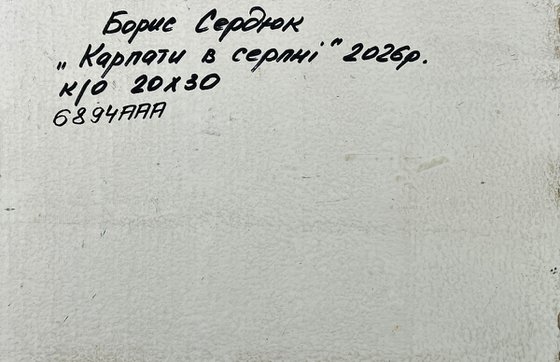 Борис Сердюк
„Карпати в серпні" 2026р.
к/о 20х30
6894ААА